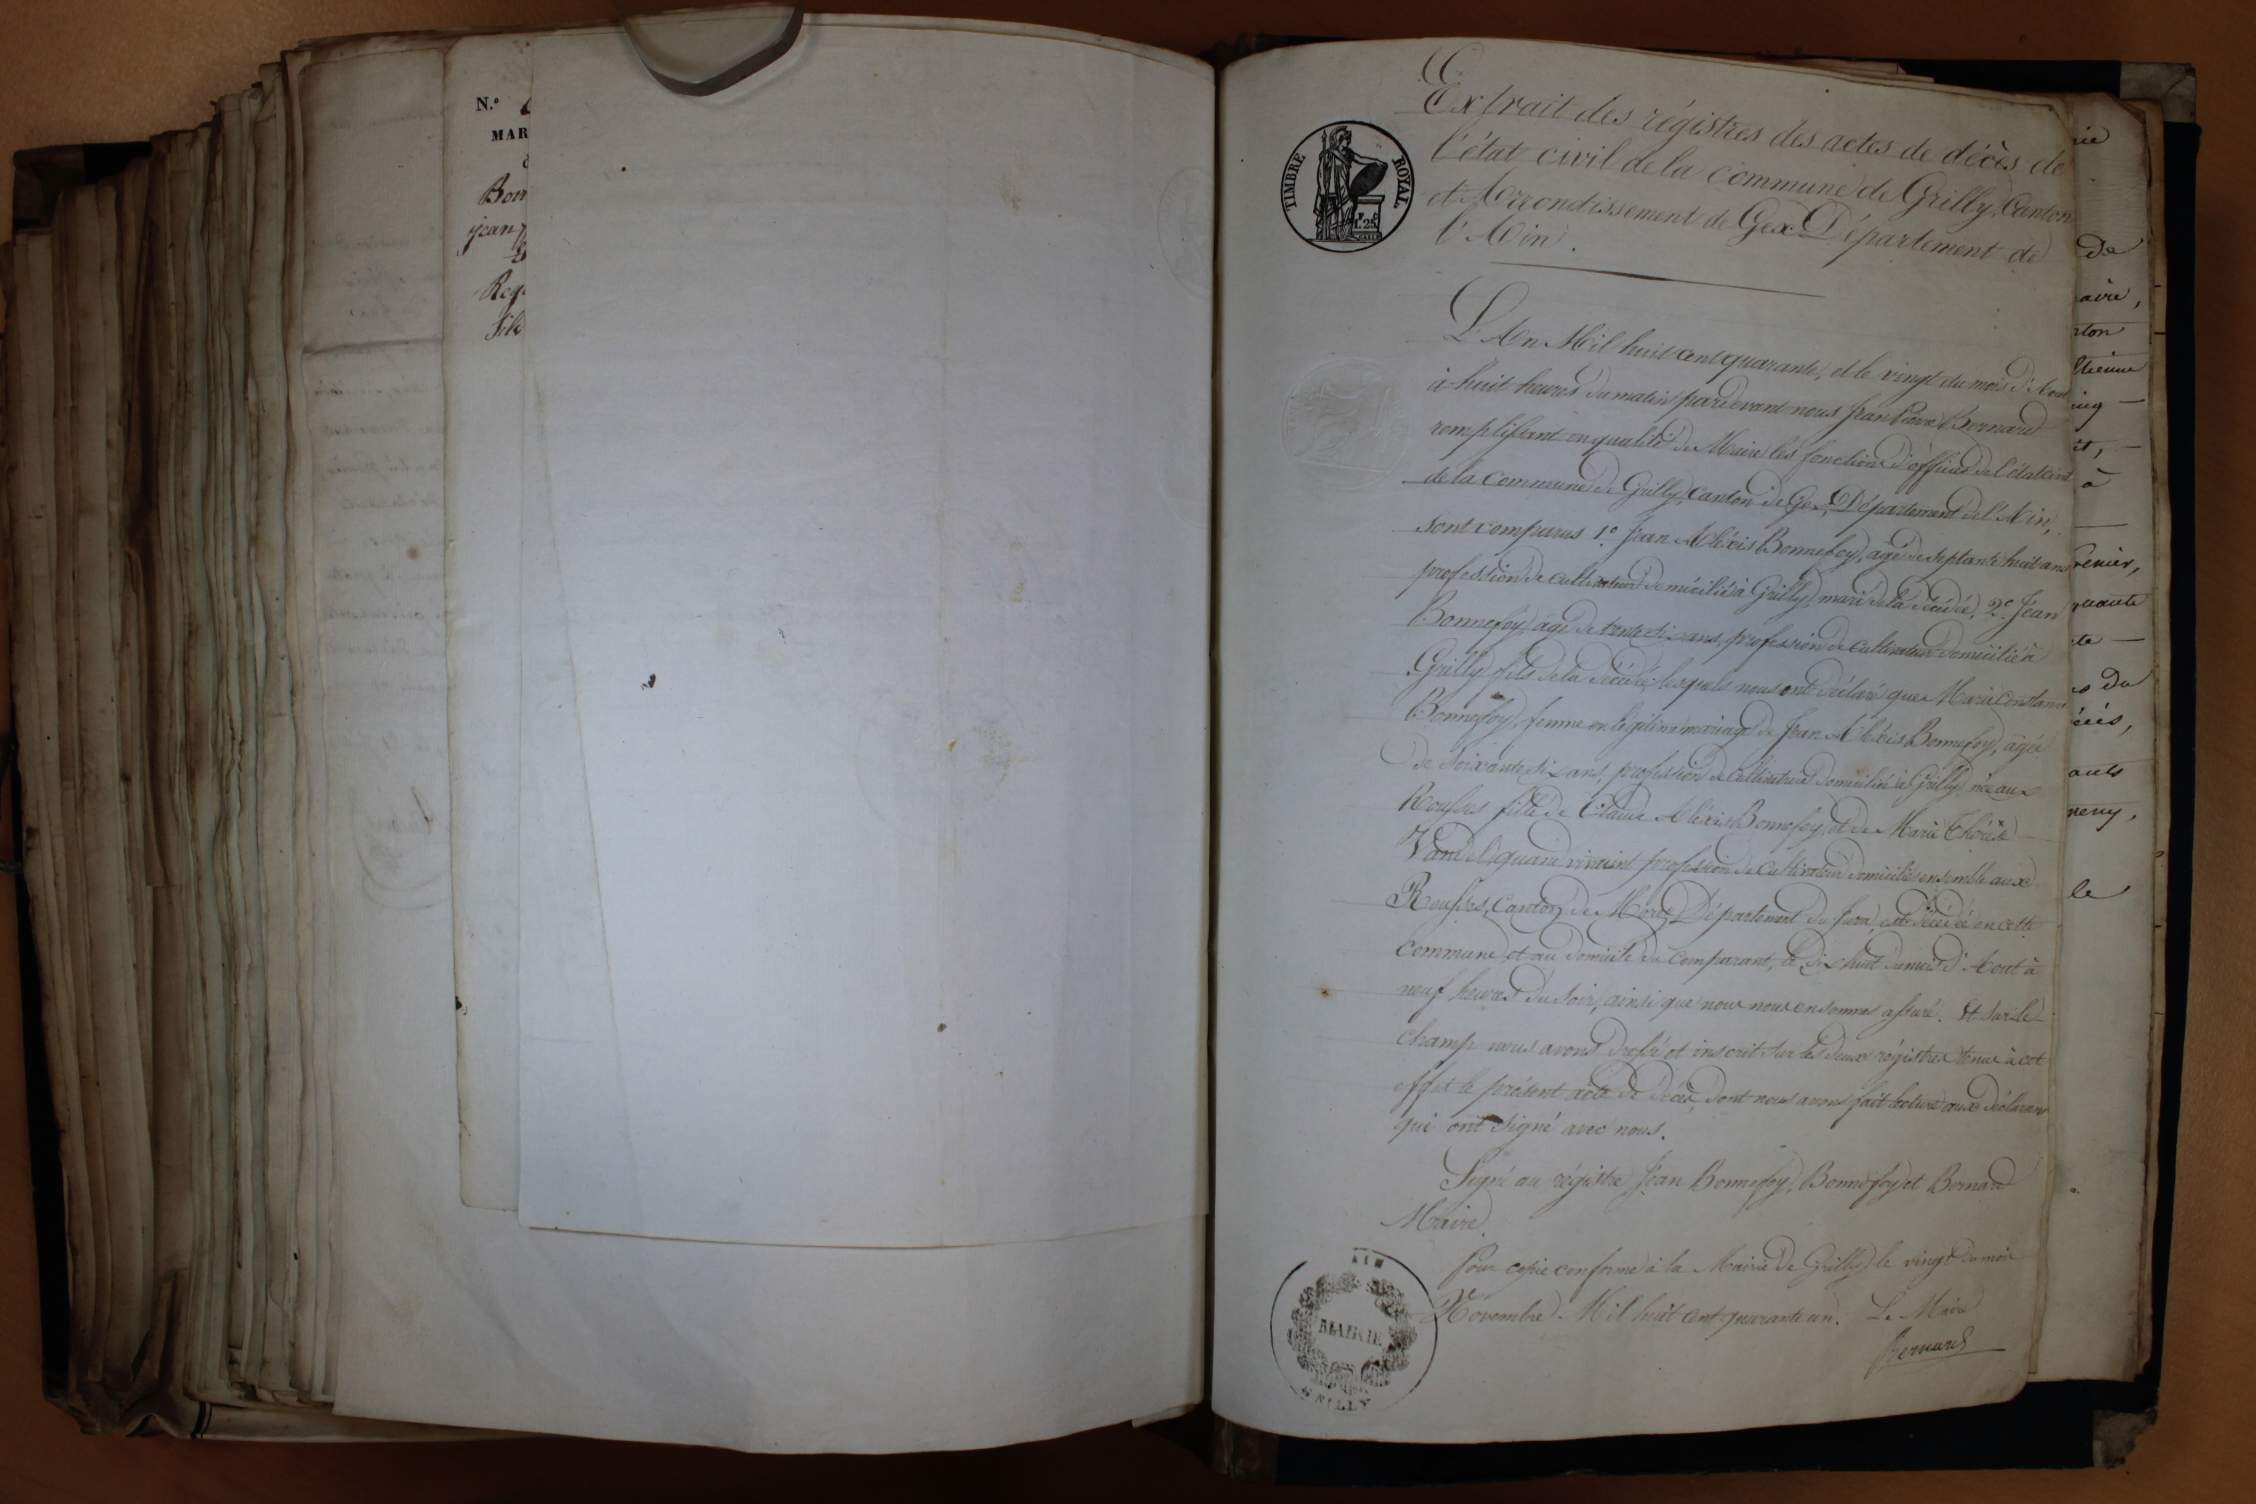 N.º
MAR
Bon
jean
Req
fils
TIMBRE ROYAL
1.25
Extrait des régistres des actes de décès de
l'état civil de la commune de Grilly, Canton
et Arrondissement de Gex. Département de
l'Ain.
L'An Mil huit cent quarante, et le vingt du mois d'Aout
à huit heures du matin pardevant nous Jean Pierre Bernard
remplissant en qualité de Maire les fonctions d'officier de l'état civil
de la commune de Grilly, canton de Gex, Département de l'Ain,
sont comparus 1º Jean Aléxis Bonnefoy, agé de septante huit ans
profession de cultivateur domicilié à Grilly, mari de la décédée, 2º Jean
Bonnefoy, agé de trente six ans, profession de cultivateur domicilié à
Grilly fils de la décédée, lesquels nous ont déclaré que Marie Constance
Bonnefoy, femme en légitime mariage de Jean Aléxis Bonnefoy, âgée
de soixante six ans, profession de cultivatrice domiciliée à Grilly, née aux
Rousses fille de Claude Aléxis Bonnefoy, et de Marie Thérèse
Vandel, quand vivaient profession de cultivateur domiciliés ensemble aux
Rousses, Canton de Morez, Département du Jura, est décédée en cette
commune, et au domicile du comparant, le dix huit du mois d'Aout à
neuf heures du soir, ainsi que nous nous en sommes assuré. Et sur le
champ nous avons dressé et inscrit sur les deux régistres tenus à cet
effet le présent acte de décès, dont nous avons fait lecture aux déclarans
qui ont signé avec nous.
Signé au régistre Jean Bonnefoy, Bonnefoy et Bernard
Maire.
Pour copie conforme à la Mairie de Grilly le vingt du mois
Novembre Mil huit cent quarante un. Le Maire
Bernard
AIN
MAIRIE
GRILLY
de
aire,
nton
Etienne
à
renier,
quante
te
du
ants
le